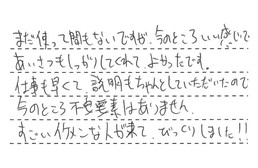 まだ使って間もないですが、今のところいい感じで
あいさつもしっかりしてくれて、よかったです。
仕事も早くて、説明もちゃんとしていただいたので
今のところ不安要素はありません。
すごいイケメンな人が来て、びっくりしました!!